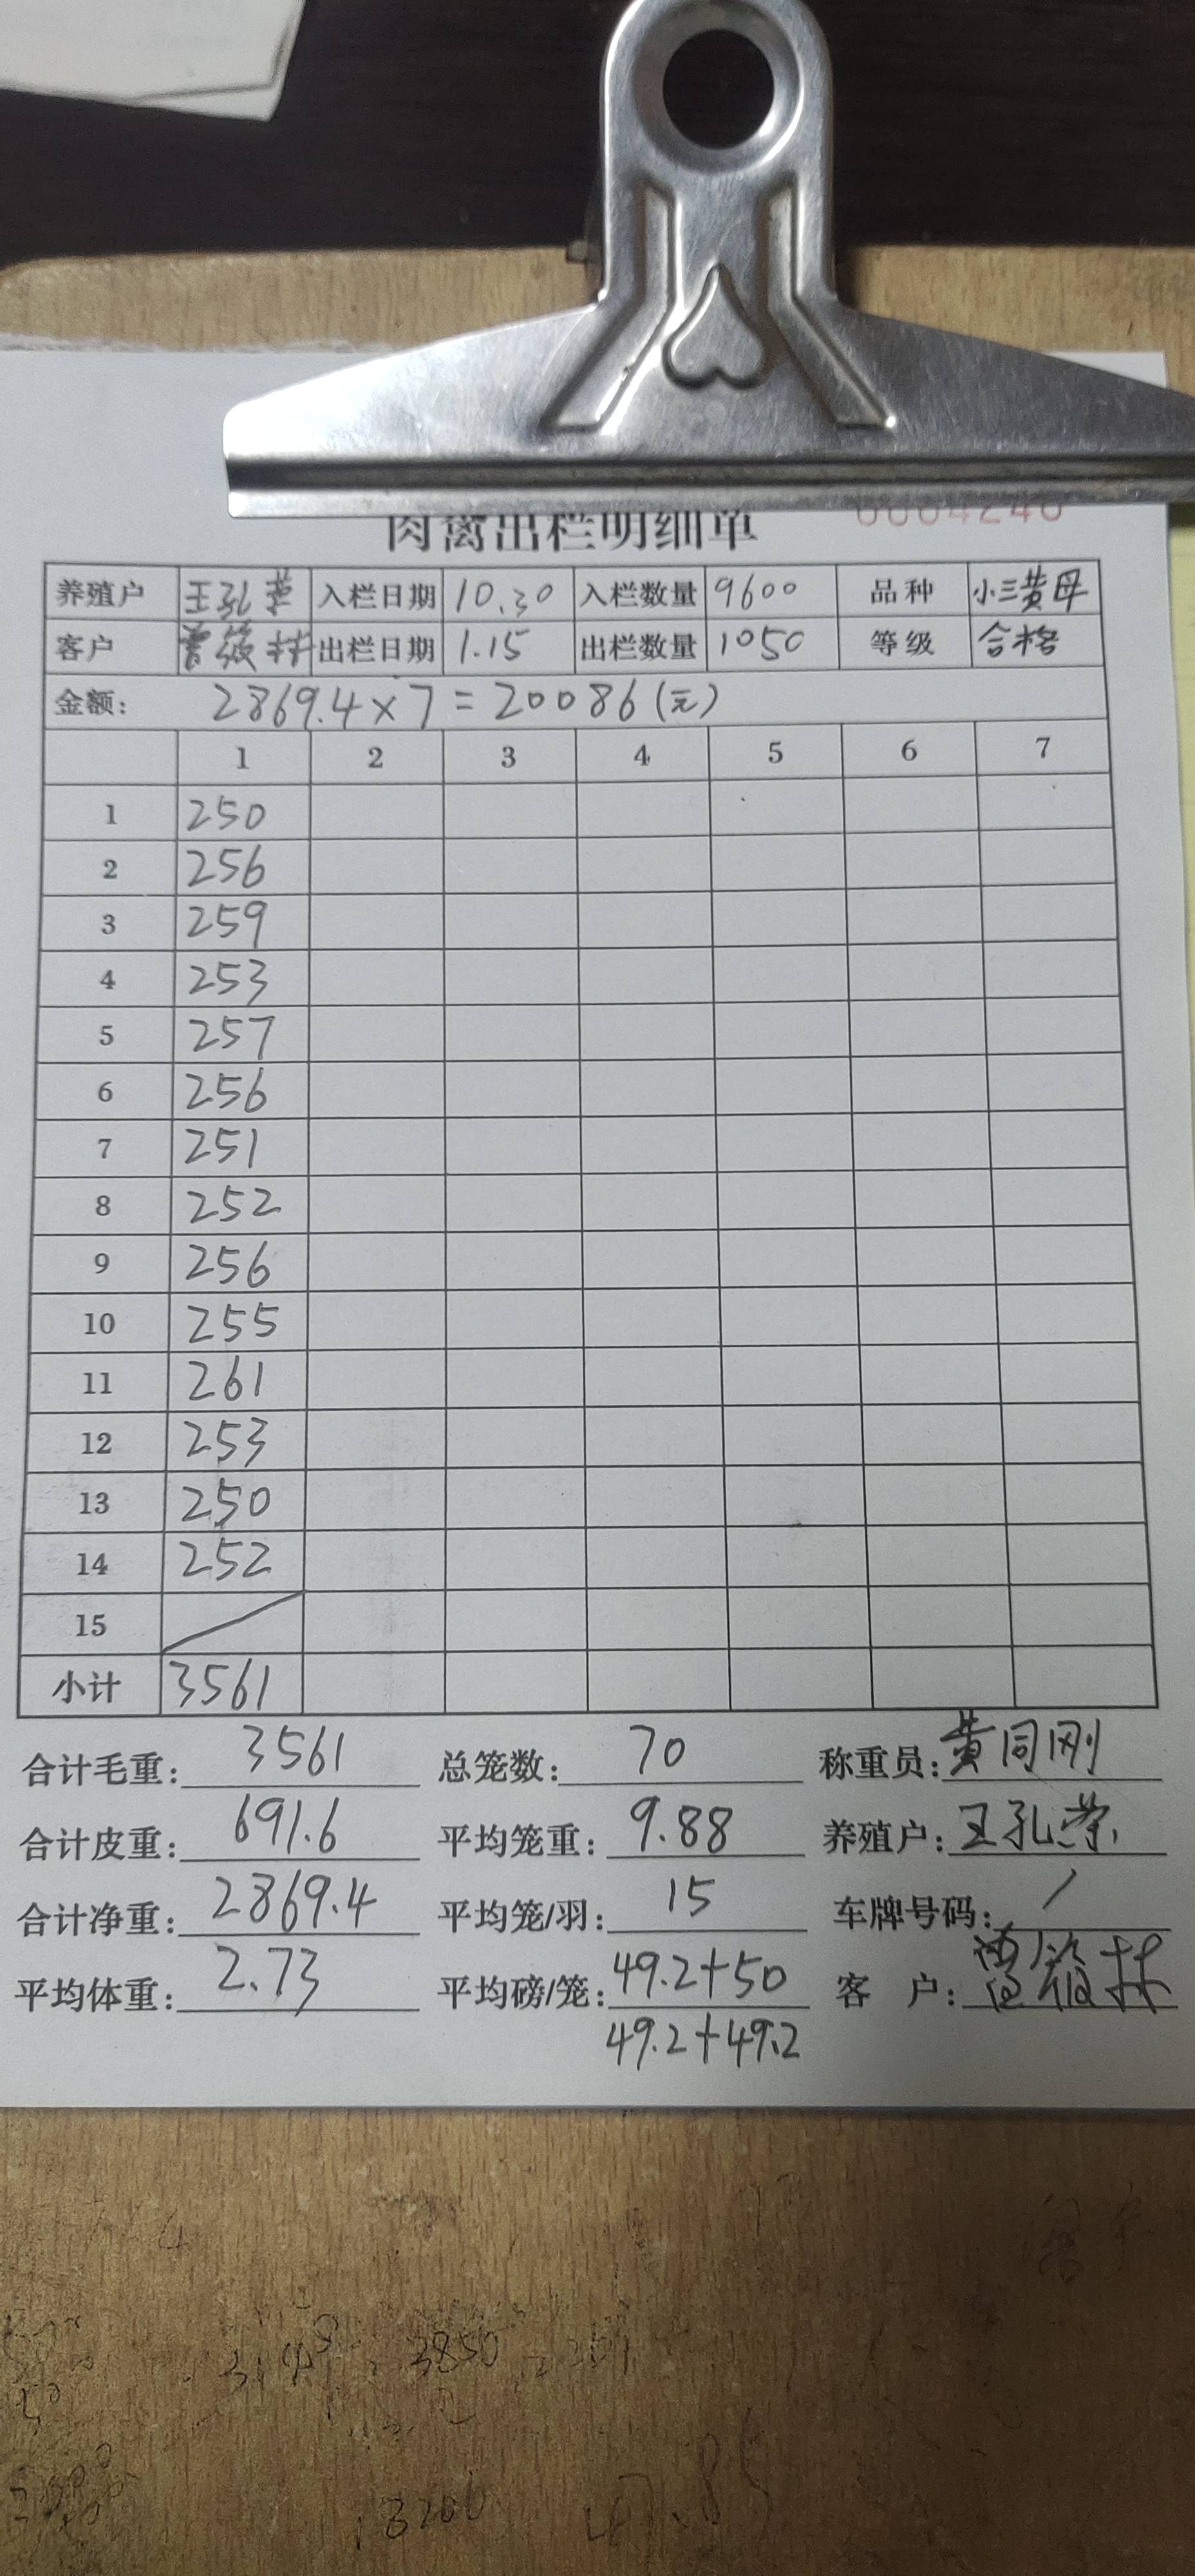 肉禽出栏明细单 0004240
养殖户 王孔荣 入栏日期 10.30 入栏数量 9600 品种 小三黄母
客户 出栏日期 1.15 出栏数量 1050 等级 合格
金额: 2869.4×7=20086(元)
1 2 3 4 5 6 7
1 250
2 256
3 259
4 253
5 257
6 256
7 251
8 252
9 256
10 255
11 261
12 253
13 250
14 252
15
小计 3561
合计毛重: 3561 总笼数: 70 称重员: 黄同刚
合计皮重: 691.6 平均笼重: 9.88 养殖户: 王孔荣
合计净重: 2869.4 平均笼/羽: 15 车牌号码: /
平均体重: 2.73 平均磅/笼: 49.2+50 客户:
49.2+49.2
3850